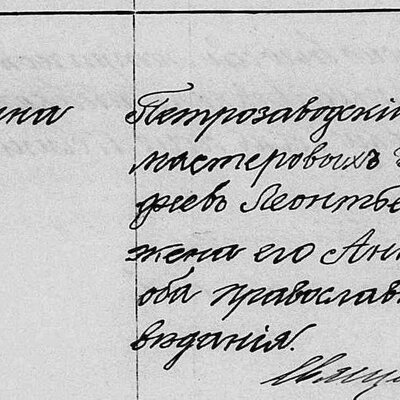 ина Петрозаводскі
мастеровыхъ
феевъ Леонтье
жена его Анн
оба православ
вѣданія.